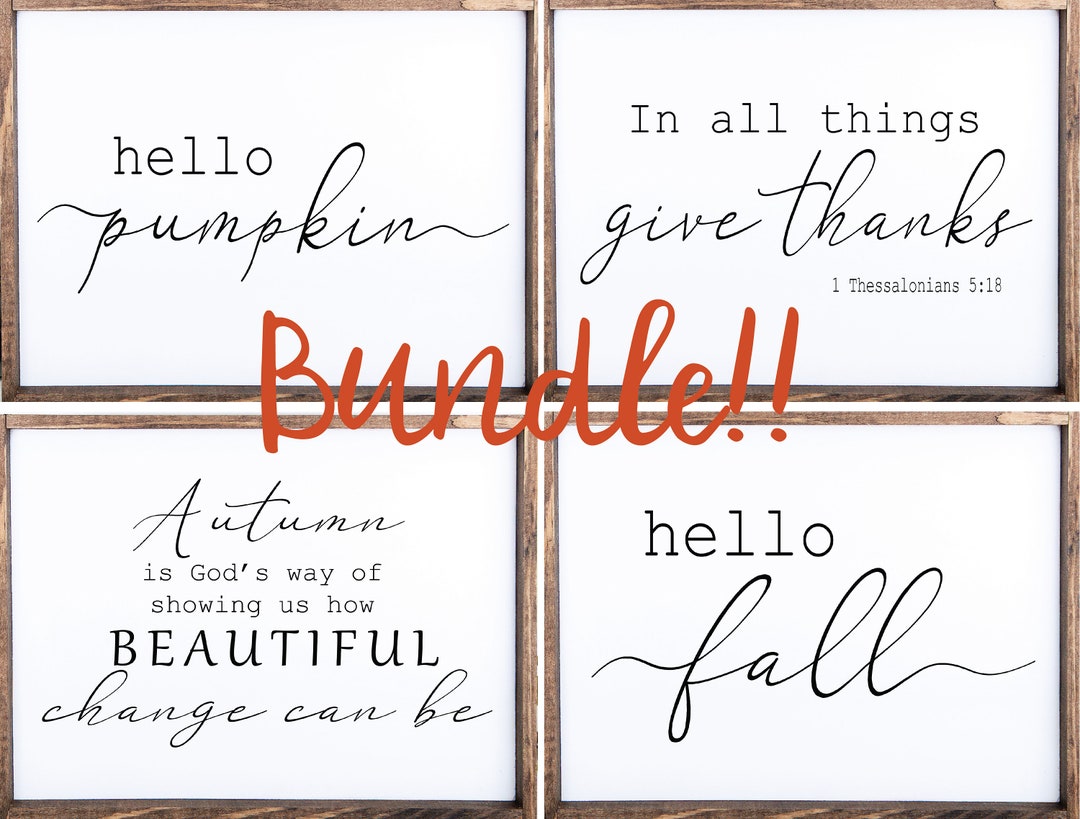 hello
pumpkin
In all things
give thanks
1 Thessalonians 5:18
Bundle!!
Autumn
is God's way of
showing us how
BEAUTIFUL
change can be
hello
fall